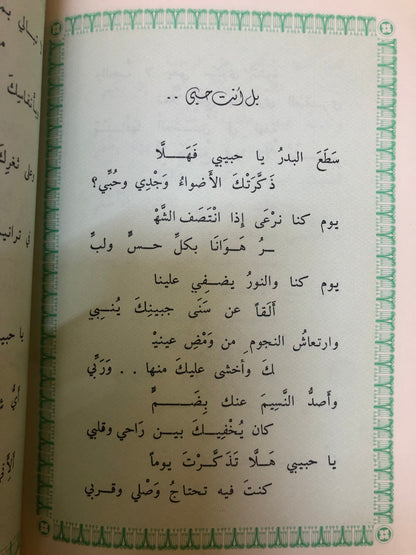 بل أنت حبي ..
سَطَعَ البدرُ يا حبيبي فَهَـــلَّا
ذَكَّرَتْكَ الأضواءُ وَجْدِي وحُبِّي؟
يوم كنا نرْعَى إذا انْتَصَف الشَّهْـ
ـــرُ هَوَانَا بكلِّ حسٍّ ولبٍّ
يوم كنا والنورُ يضـفِـي علينا
أَلَقاً عن سَنَى جبينِكَ يُنـبِي
وارتعاشُ النجومِ مِن وَمْضِ عينيْـ
ـكَ وأخشى عليكَ منها .. وَرَبِّي
وأَصدُّ النَّسِيمَ عنك بِضَـــمٍّ
كان يُخْفِيـكَ بيـن رَاحي وقلبي
يا حبيبي هَـلَّا تَذكَّـرْتَ يوماً
كنتَ فيه تحتاجُ وَصْلي وقربي